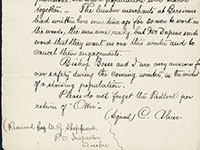 together. The lumber merchants at Bersimis
had written here some time ago for 30 men to work in
the woods, the men were ready, but Mr Dupuis sends
word that they want no one this winter and to
cancel their engagement.
Bishop Bossé and I are very anxious for
our safety during the coming winter in the midst
of a starving population.
Please do not forget the Padlock per
return of "Otter"
(Signed) C.
(Received by W. G. Shepherd
Inspector
Quebec